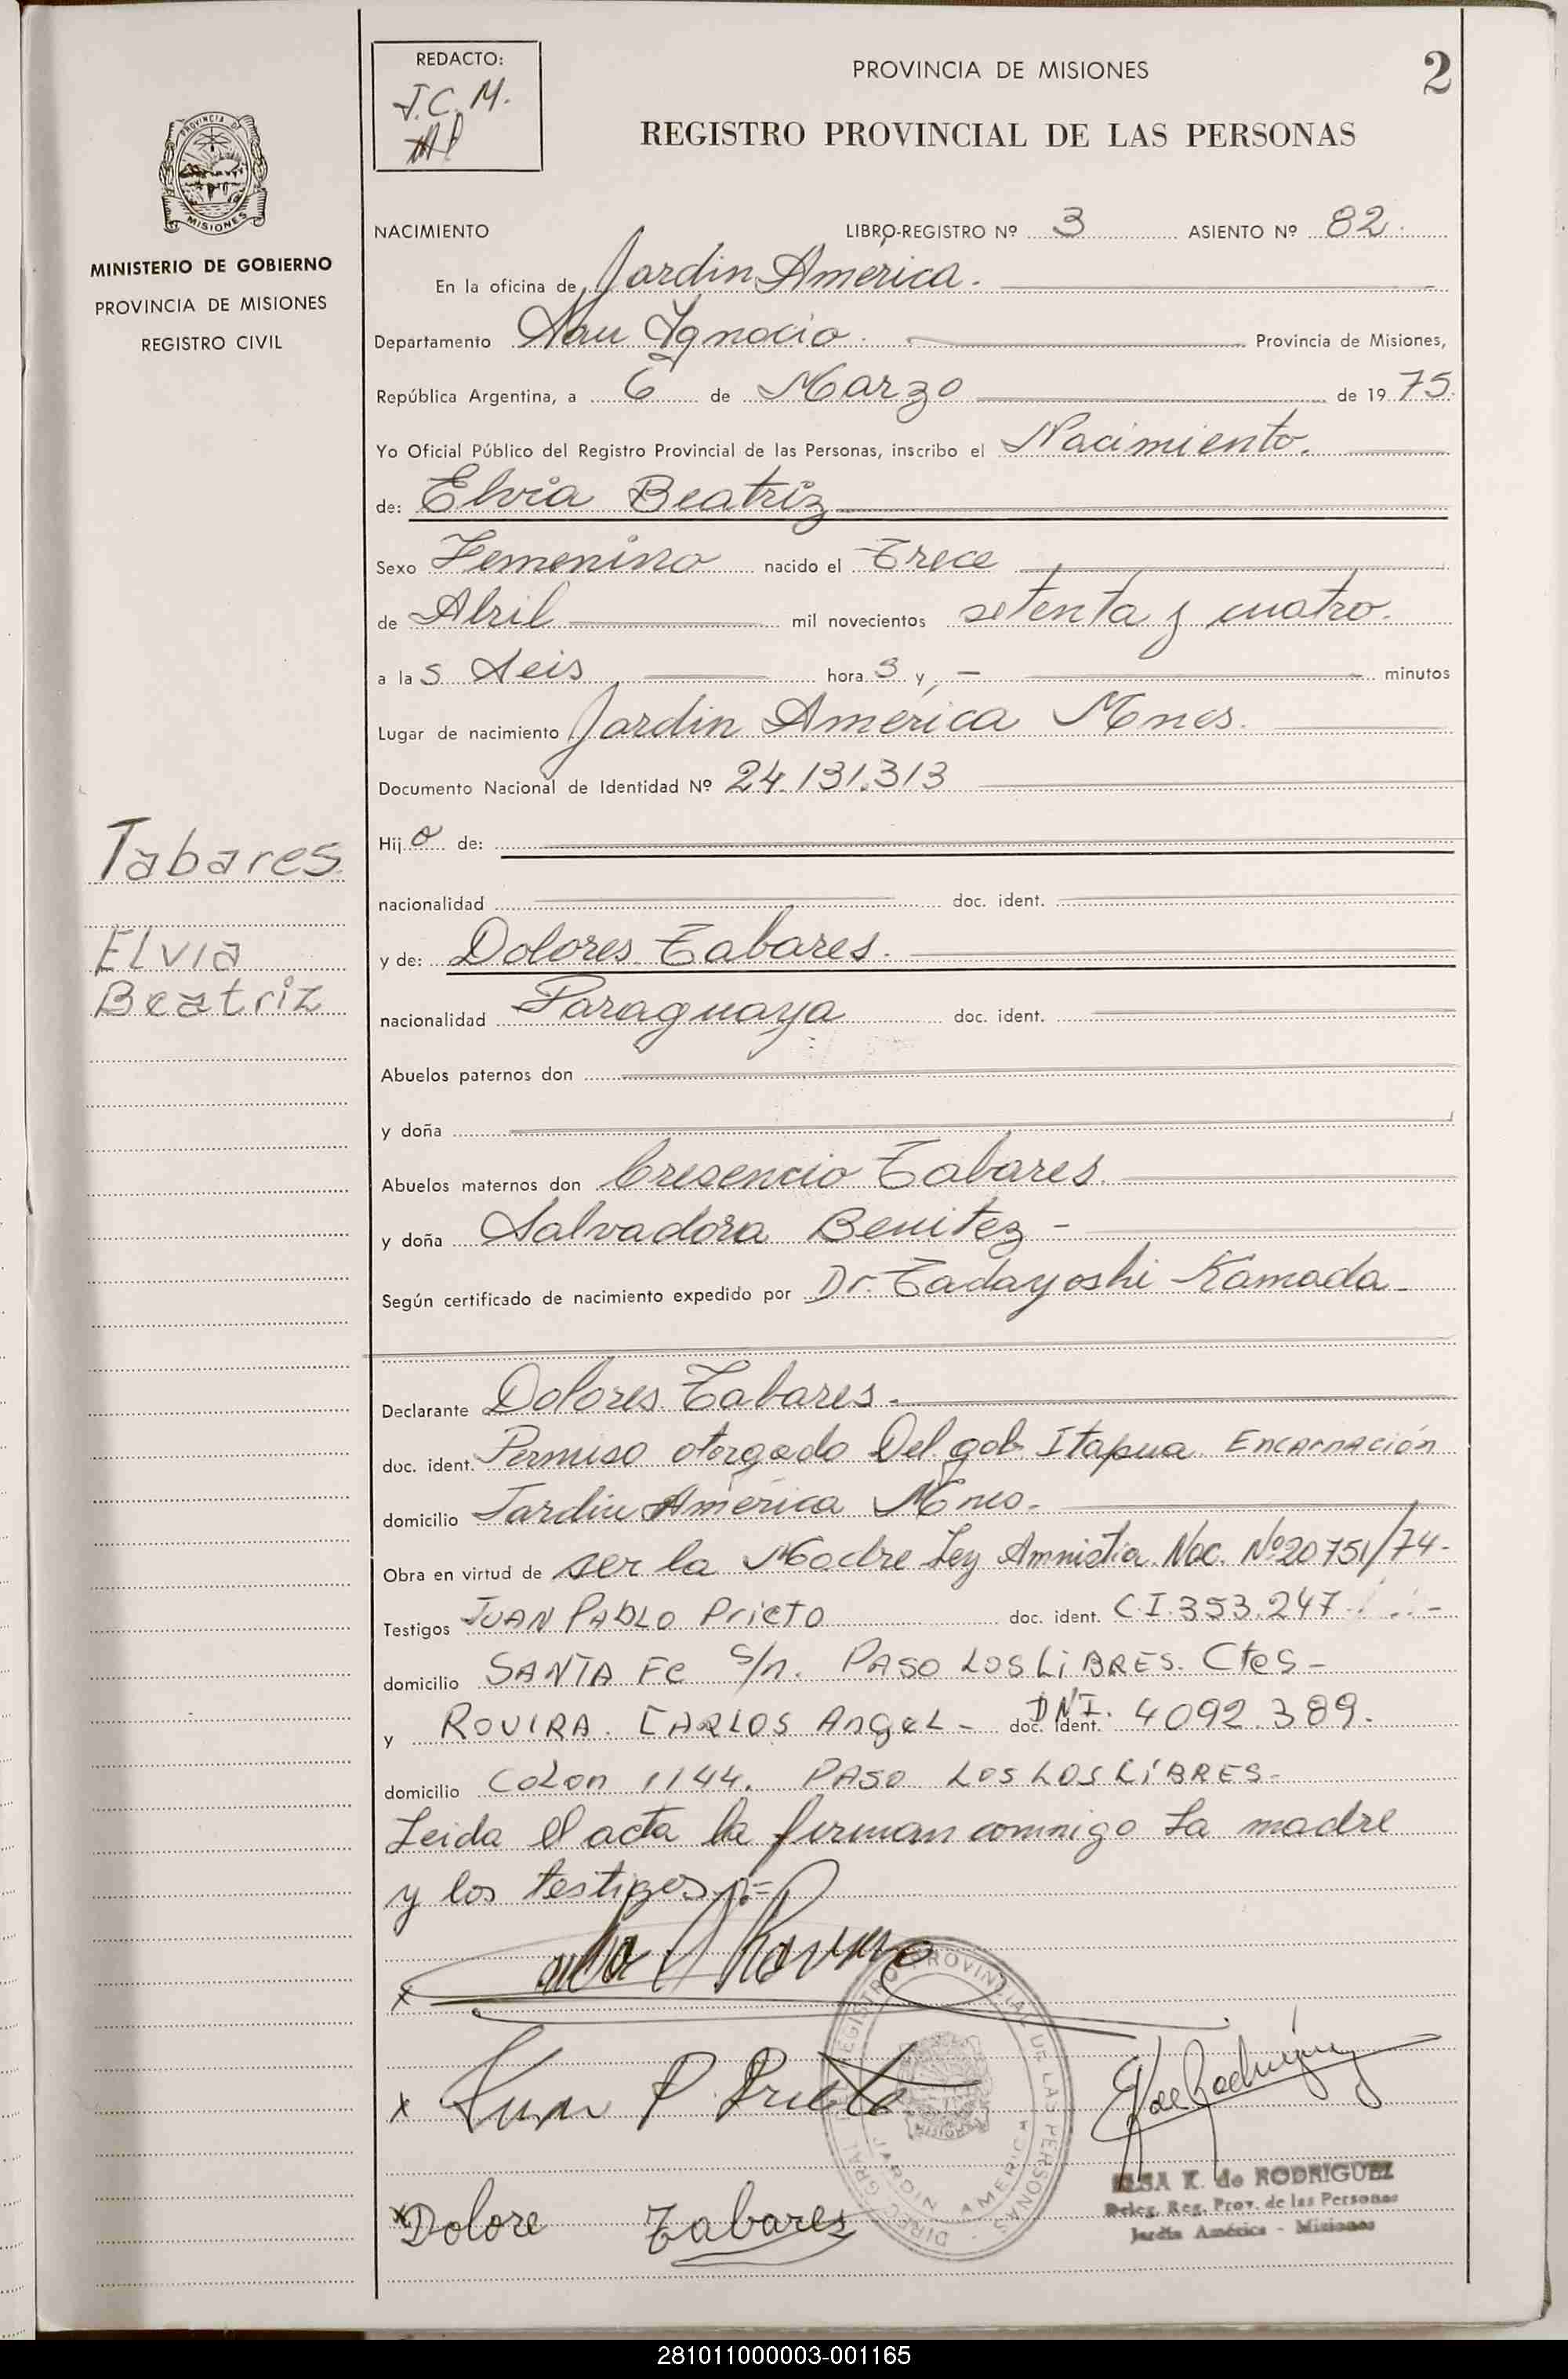 REDACTO:
J.C.M.
PROVINCIA DE MISIONES
2
REGISTRO PROVINCIAL DE LAS PERSONAS
PROVINCIA DE
MISIONES
MINISTERIO DE GOBIERNO
PROVINCIA DE MISIONES
REGISTRO CIVIL
NACIMIENTO LIBRO-REGISTRO Nº 3 ASIENTO Nº 82.
En la oficina de Jardin America.
Departamento San Ignacio. Provincia de Misiones,
República Argentina, a 6 de Marzo de 1975.
Yo Oficial Público del Registro Provincial de las Personas, inscribo el Nacimiento.
de: Elvia Beatriz
Sexo Femenino nacido el Trece
de Abril mil novecientos setenta y cuatro.
a las Seis horas y, — minutos
Lugar de nacimiento Jardin América Mnes.
Documento Nacional de Identidad Nº 24.131.313
Hija de:
Tabares
nacionalidad doc. ident.
Elvia
y de: Dolores Tabares.
Beatriz
nacionalidad Paraguaya doc. ident.
Abuelos paternos don
y doña
Abuelos maternos don Cresencio Tabares.
y doña Salvadora Benitez -
Según certificado de nacimiento expedido por Dr. Tadayoshi Kamada
Declarante Dolores Tabares.
doc. ident. Permiso otorgado Del. gob. Itapua. Encarnación
domicilio Jardin América Mnes.
Obra en virtud de ser la Madre Ley Amnistia Nac. Nº 20751/74-
Testigos JUAN PABLO Prieto doc. ident. C.I. 353.247
domicilio SANTA FE S/n. PASO LOS LiBRES. Ctes -
y ROVIRA. CARLOS Angel - doc. ident. DNI. 4092.389.
domicilio Colon 1144. PASO LOS LOS LiBRES-
Leida el acta la firman conmigo La madre
y los testigos.=
x
x Juan P Prieto
x Dolore Tabares
DIREC. GRAL. REGISTRO PROVINCIAL DE LAS PERSONAS
MISIONES
JARDIN AMERICA
ELSA K. de RODRIGUEZ
Deleg. Reg. Prov. de las Personas
Jardín América - Misiones
281011000003-001165